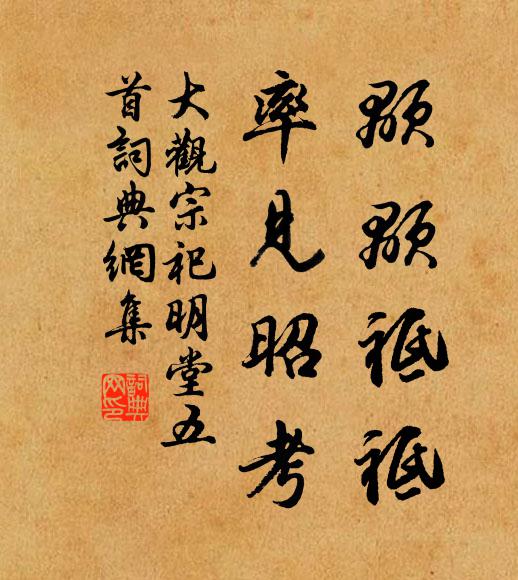 顒顒祗祗
率見昭考
大觀宗祀明堂五
首詞典網集
詞典
网印